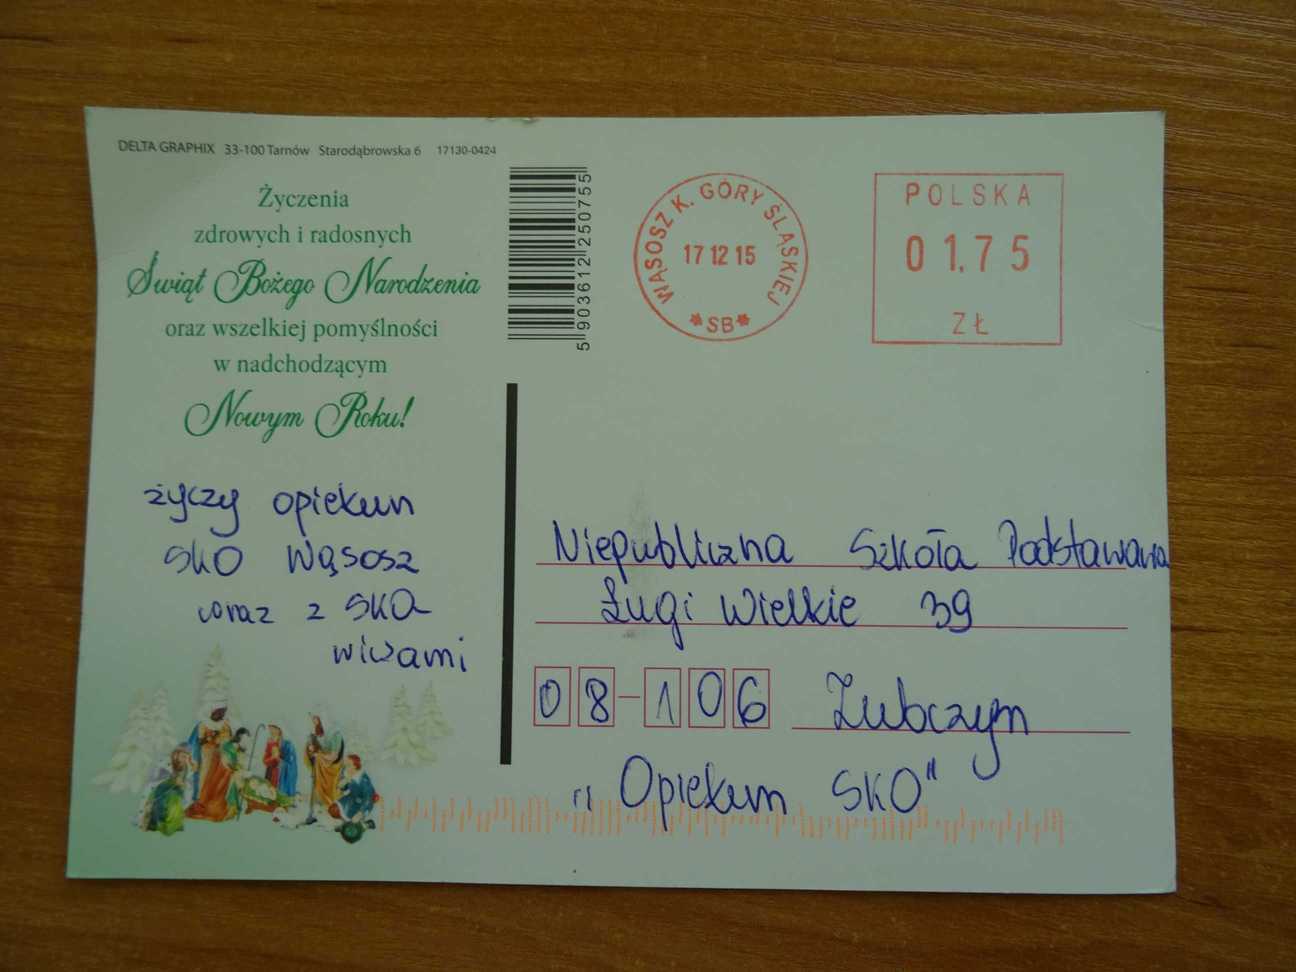 DELTA GRAPHIX 33-100 Tarnów Starodąbrowska 6 17130-0424
Życzenia
zdrowych i radosnych
Świąt Bożego Narodzenia
oraz wszelkiej pomyślności
w nadchodzącym
Nowym Roku!
życzy opiekun
SKO Wąsosz
wraz z SKO
wiczami
5903612250755
WĄSOSZ K. GÓRY ŚLĄSKIEJ
17 12 15
*SB*
POLSKA
01,75
ZŁ
Niepubliczna Szkoła Podstawowa
Ługi Wielkie 39
08-106 Zubczyn
"Opiekun SKO"